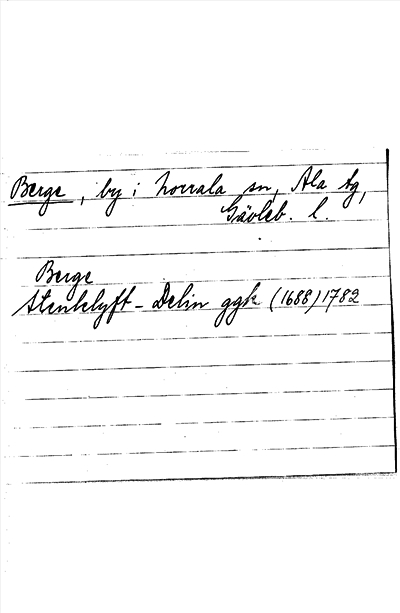 Berge, by i Norrala sn, Ala tg,
Gävleb. l.
Berge
Stenklyft - Delin ggk (1688) 1782